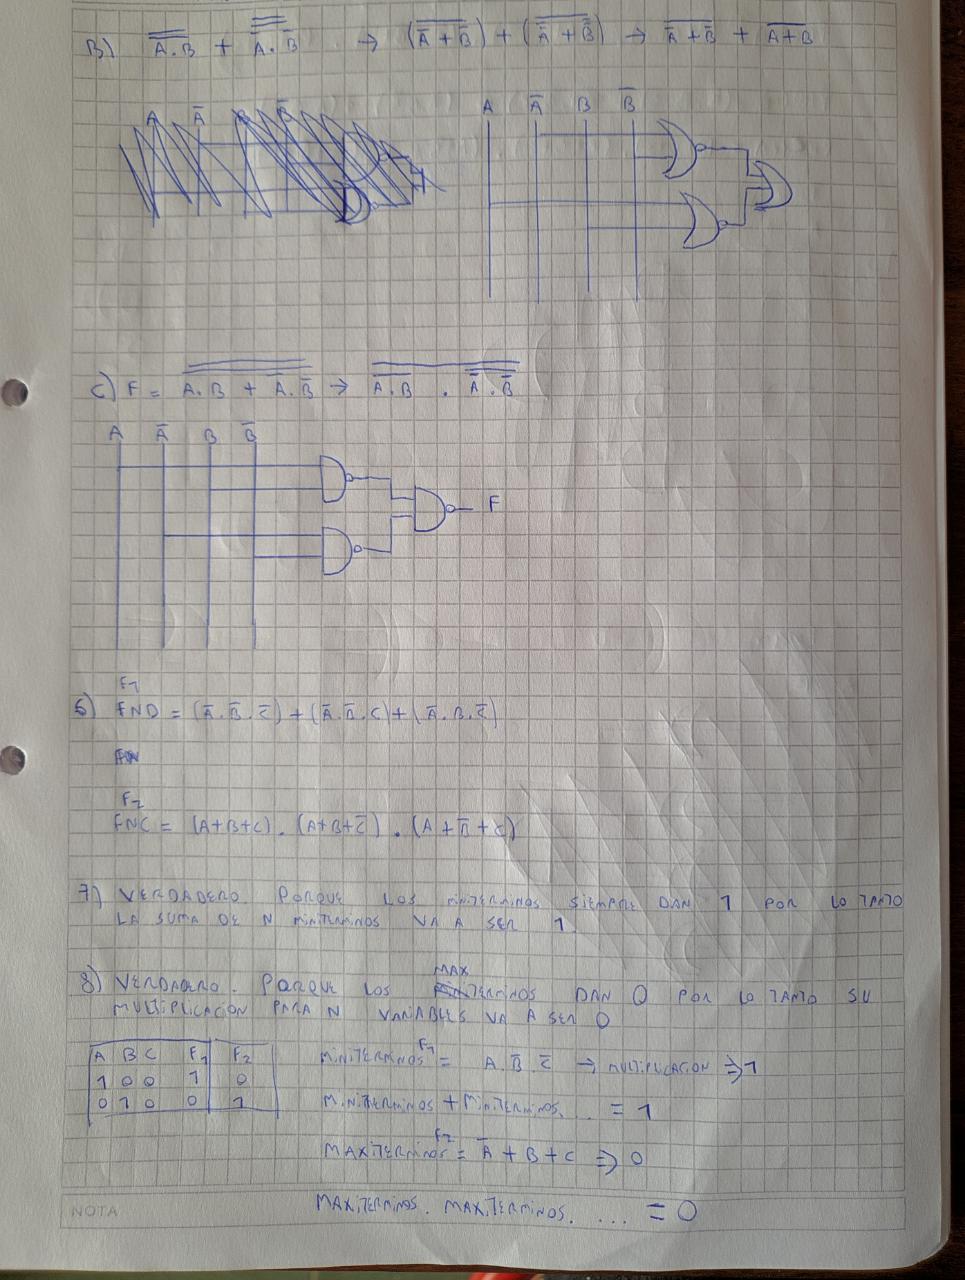 B) A̿.̿B̿ + A̿̅.̿B̿̅ → (A̅ + B̅)̅ + (A̿ + B̿)̅ → A̅ + B̅̅ + A + B̅
A A̅ B B̅
A A̅ B B̅
C) F = A̿.̿B̿ ̿+̿ A̿̅.̿B̿̅ → A.B̅ . A̅.B̅
A A̅ B B̅
F
F1
6) FND = (A̅.B̅.C̅) + (A̅.B̅.C) + (A̅.B.C̅)
F2
FNC = (A+B+C) . (A+B+C̅) . (A+B̅+C)
7) VERDADERO. PORQUE LOS MINITERMINOS SIEMPRE DAN 1 POR LO TANTO
LA SUMA DE N MINITERMINOS VA A SER 1
8) VERDADERO. PORQUE LOS MAXTERMINOS DAN 0 POR LO TANTO SU
MULTIPLICACION PARA N VARIABLES VA A SER 0
A B C F1 F2
1 0 0 1 0
0 1 0 0 1
MINITERMINOS F1 = A.B̅ C̅ → MULTIPLICACION ⇒ 1
MINITERMINOS + MINITERMINOS... = 1
MAXITERMINOS F2 = A̅ + B + C ⇒ 0
MAXITERMINOS. MAXITERMINOS. ... = 0
NOTA